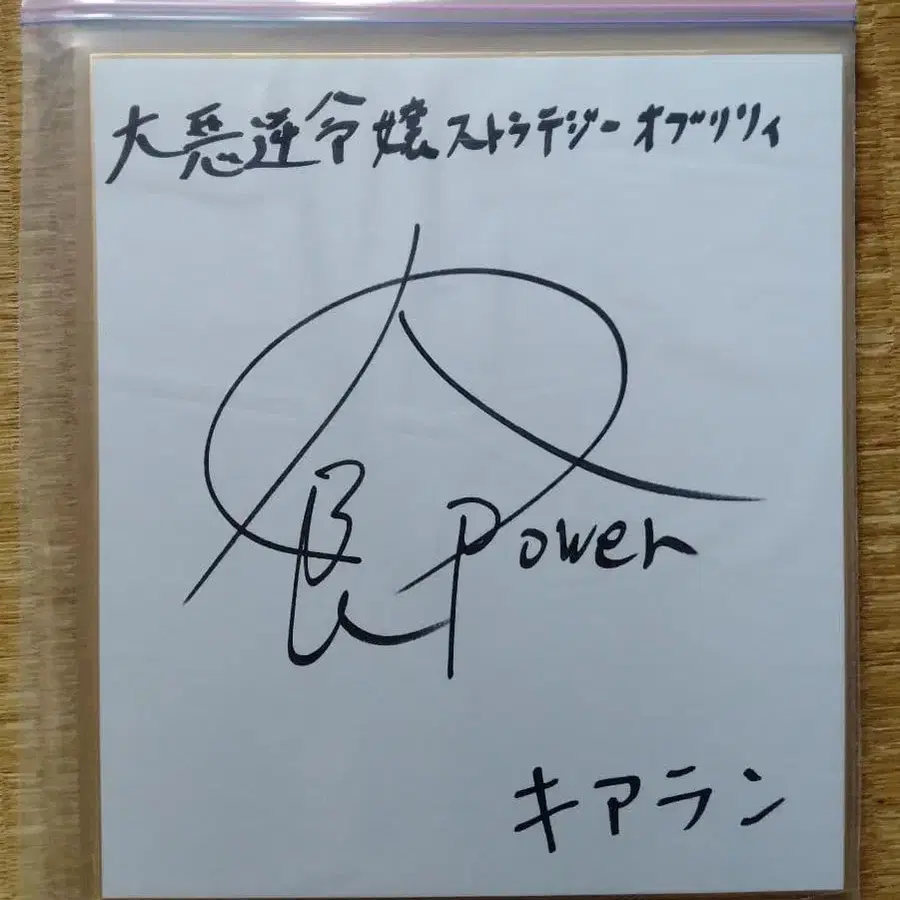 大悪逆令嬢ストラテジーオブリリィ
Power
キアラン